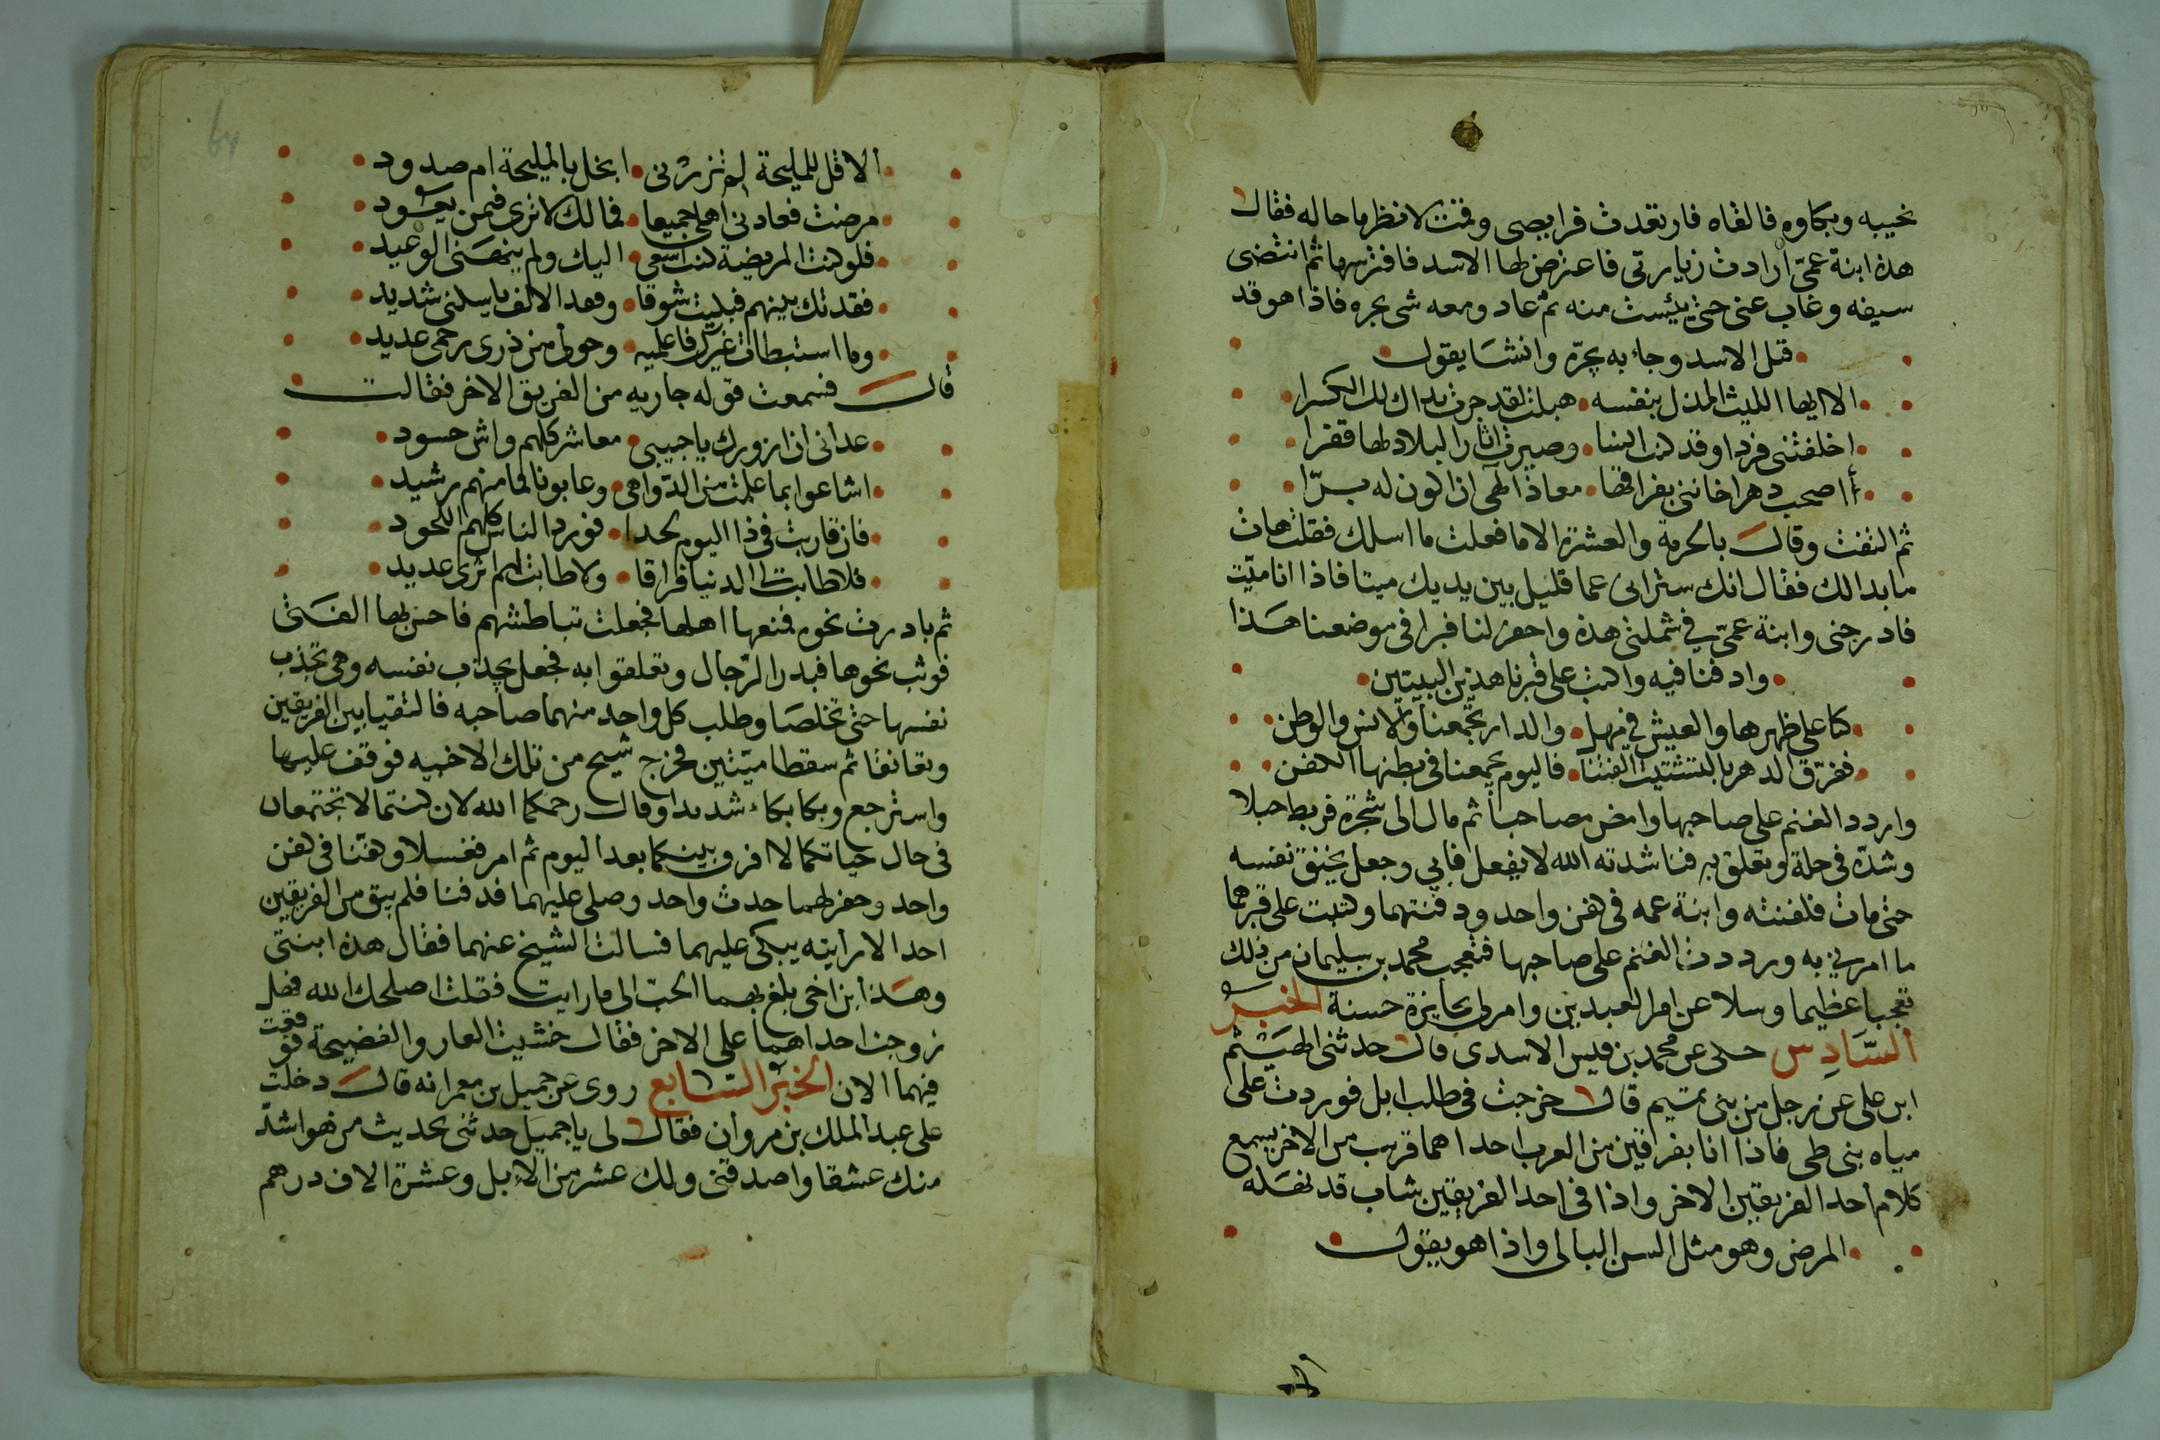 نحيبه وبكاوه فالقاه فارتعدت فرايصى وقمت لانظر ما حاله فقال
هذه ابنة عمىّ ارادت زيارتى فاعترض لها الاسد فافترسها ثم انتضى
سيفه وغاب عنى حتى يئست منه ثم عاد ومعه شى يجره فاذا هو قد
قتل الاسد وجاء به يجرّه وانشا يقول
الا ايها الليث المدل بنفسه هبلت لقد جرت يداك لك الكسرا
اخلفتنى فردا وقد كنت انسا وصيرت اثار البلاد لها قفرا
أ اصحب دهرا خاننى بفراقها معاذ الهى ان اكون له برّا
ثم التفت وقال بالحرمة والعشرة الا ما فعلت ما اسلك فقلت هات
ما بدالك فقال انك سترانى عما قليل بين يديك ميتا فاذا انا ميّت
فادرجنى وابنة عمىّ فى شملتى هذه واحفر لنا قبرا فى موضعنا هذا
وادفنا فيه واكتب على قبرنا هذين البيتين
كنا على ظهرها والعيش فى مهل والدار تجمعنا والانس والوطن
ففرّق الدهر بالتشتيت الفتنا فاليوم يجمعنا فى بطنها الكفن
واردد الغنم على صاحبها وامض مصاحبا ثم مال الى شجرة فربط حبلا
وشدّه فى حلقه وتعلق به فناشدته الله لا يفعل فابى وجعل يخنق نفسه
حتى مات فلففته وابنة عمه فى كفن واحد ودفنتهما وكتبت على قبرهما
ما امرنى به ورددت الغنم على صاحبها فتعجب محمد بن سليمان من ذلك
تعجبا عظيما وسلا عن امر العبدين وامر لى بجايزة حسنة الخبر
السّادس حكى عن محمد بن قيس الاسدى قال حدثنى الهيثم
ابن على عن رجل من بنى تميم قال خرجت فى طلب ابل فوردت على
مياه بنى طى فاذا انا بفراقين من العرب احداهما قريب من الاخر يسمع
كلام احد الفريقين الاخر واذا فى احد الفريقين شاب قد نهكه
المرض وهو مثل السن البالى واذا هو يقول
الا قل للمليحة لم تزرنى ابخل بالمليحة ام صدود
مرضت فعادنى اهلى جميعا فمالك لا ترى فيمن يعود
فلو كنت المريضة كنت اسعى اليك ولم ينهضنى الوعيد
فقدتك بينهم فبليت شوقا وفقد الالف يا سكنى شديد
وما استبطات غيرك فاعلميه وحولى من ذوى رحمى عديد
قال فسمعت قوله جاريه من الفريق الاخر فقالت
عدانى ان ازورك يا حبيبى معاشر كلهم واش حسود
اشاعوا بما علمت من الدّواهى وعابونا فما منهم رشيد
فان قاربت فى ذا اليوم لحدا فورد الناس كلهم اللحود
فلا طابت لى الدنيا فراقا ولا طابت لهم اثرى عديد
ثم بادرت نحوه فمنعها اهلها فجعلت تباطشهم فاحس بها الفتى
فوثب نحوها فبدر الرّجال وتعلقوا به فجعل يجذب نفسه وهى تجذب
نفسها حتى تخلصا وطلب كل واحد منهما صاحبه فالتقيا بين الفريقين
وتعانقا ثم سقطا ميّتين فخرج شيخ من تلك الاخبيه فوقف عليها
واسترجع وبكا بكاء شديدا وقال رحمكما الله لان كنتما لا تجتمعان
فى حال حياتكما لا افرق بينكما بعد اليوم ثم امر فغسلا وكفّنا فى كفن
واحد وحفر لهما حدث واحد وصلى عليهما فدفنا فلم يبق من الفريقين
احد الا رأيته يبكى عليهما فسالت الشيخ عنهما فقال هذه ابنتى
وهذا بن اخى بلغ بهما الحبّ الى ما رايت فقلت اصلحك الله فهل
زوجت احداهما على الاخر فقال خشيت العار والفضيحة فوقعت
فيهما الان الخبر السّابع روى عن جميل بن معمر انه قال دخلت
على عبد الملك بن مروان فقال لى يا جميل حدثنى بحديث من هو اشدّ
منك عشقا واصدقنى ولك عشر من الابل وعشرة الاف درهم